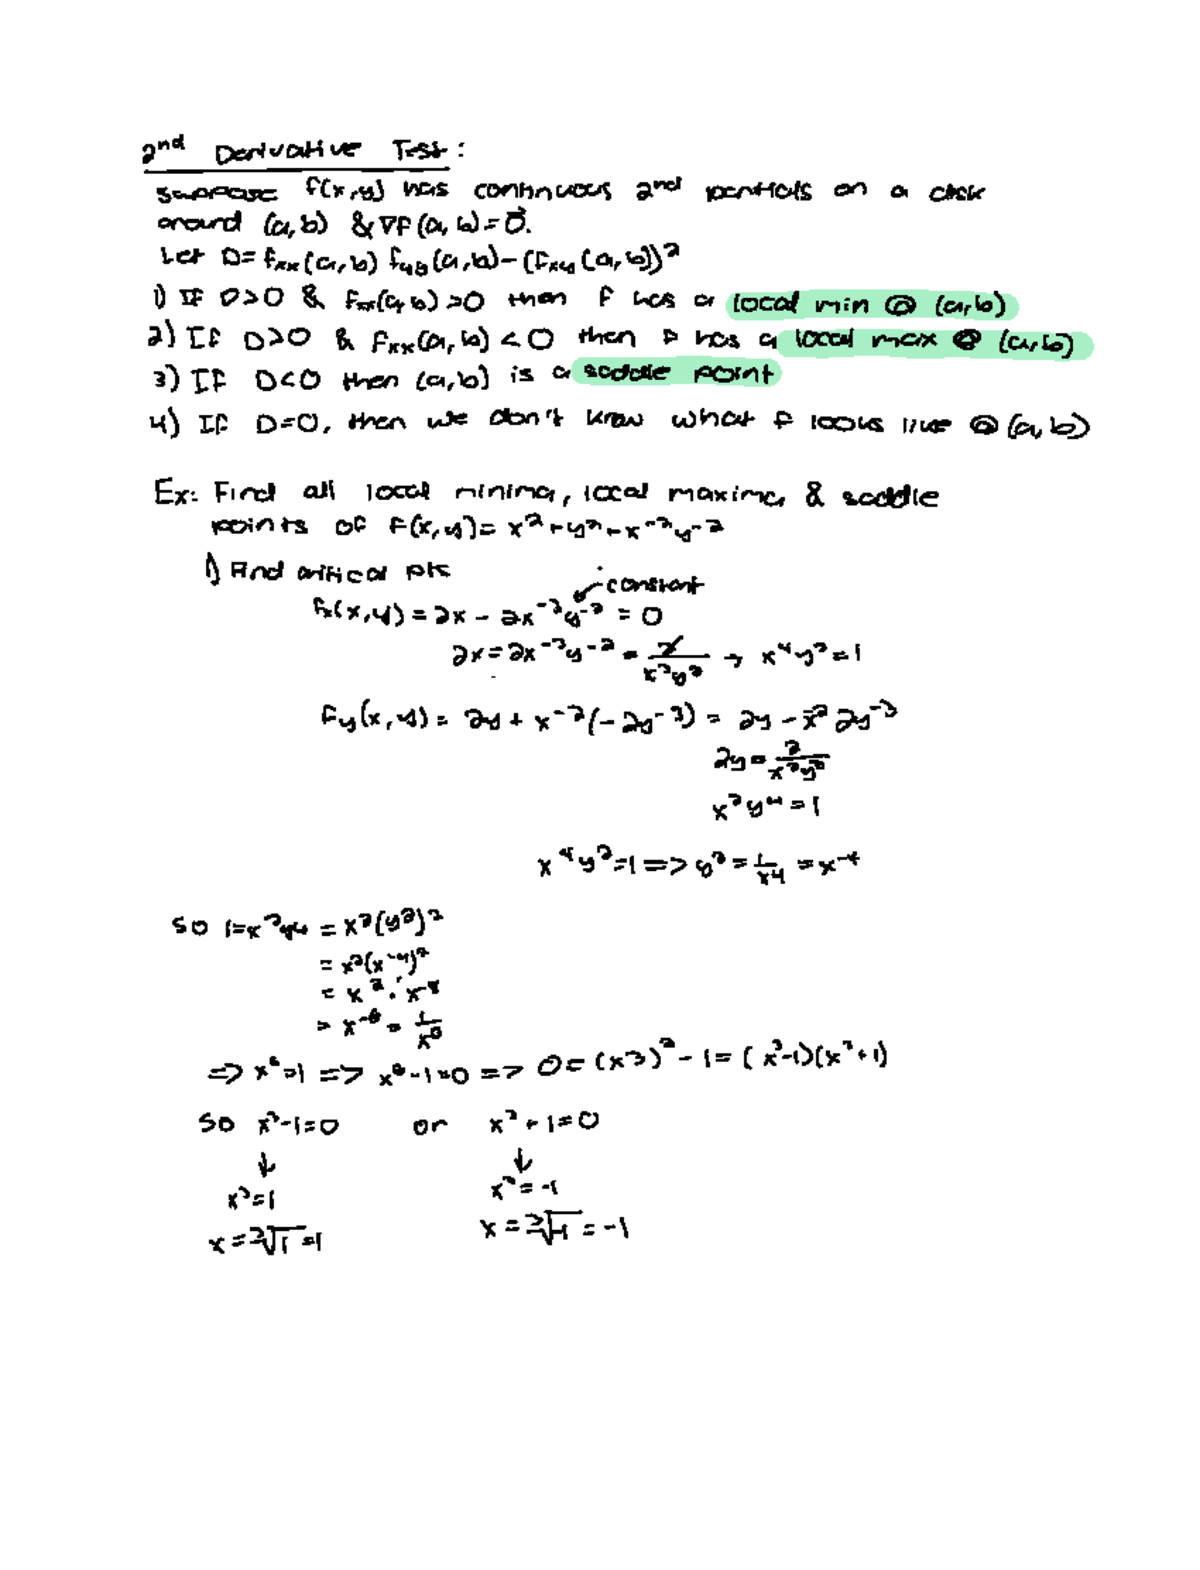 2nd Derivative Test:
Suppose f(x,y) has continuous 2nd partials on a disk
around (a,b) & ∇f(a,b)=0⃗.
Let D=fxx(a,b) fyy(a,b)-(fxy(a,b))²
1) If D>0 & fxx(a,b)>0 then f has a local min @ (a,b)
2) If D>0 & fxx(a,b)<0 then f has a local max @ (a,b)
3) If D<0 then (a,b) is a saddle point
4) If D=0, then we don't know what f looks like @ (a,b)
Ex: Find all local minima, local maxima, & saddle
points of f(x,y)= x²+y²+x⁻²y⁻²
1) Find critical pts
constant
fx(x,y)=2x - 2x⁻³y⁻² = 0
2x=2x⁻³y⁻² = 2/(x³y²) → x⁴y²=1
fy(x,y)= 2y + x⁻²(-2y⁻³) = 2y - x⁻² 2y⁻³
2y = 2/(x²y³)
x²y⁴=1
x⁴y²=1 => y² = 1/x⁴ = x⁻⁴
So 1=x²y⁴ = x²(y²)²
= x²(x⁻⁴)²
= x² · x⁻⁸
= x⁻⁶ = 1/x⁶
=> x⁶=1 => x⁶-1=0 => 0=(x³)²-1=(x³-1)(x³+1)
So x³-1=0 or x³+1=0
↓ ↓
x³=1 x³=-1
x=³√1=1 x=³√-1=-1